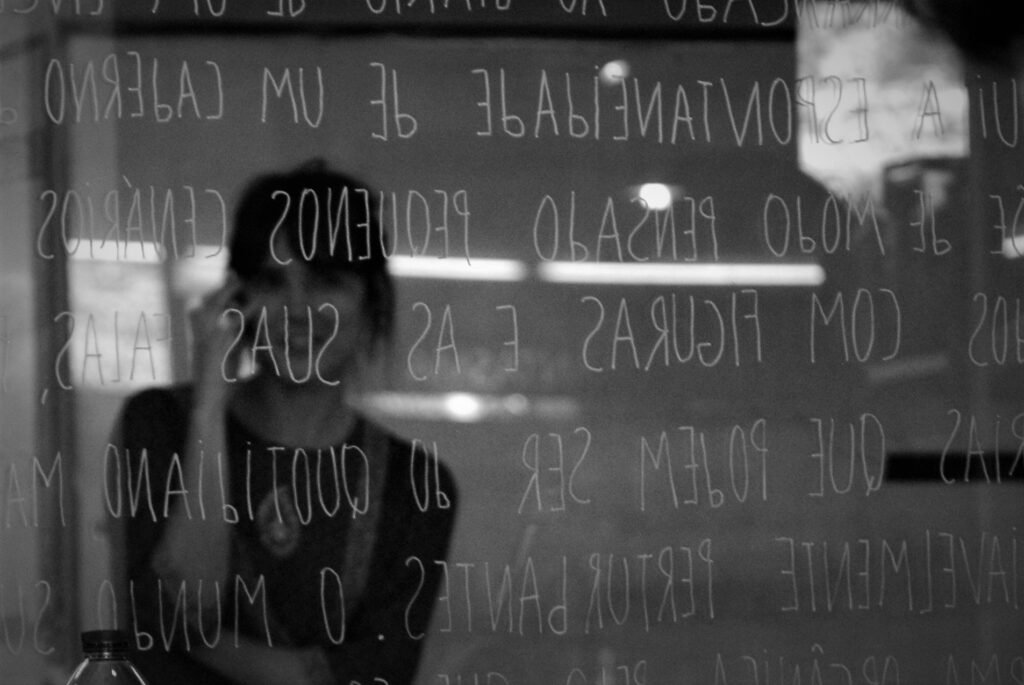 AO DIÁRIO DE
UI A ESPONTANEIDADE DE UM CADERNO
DE MODO PENSADO PEQUENOS CENÁRIOS
HOS COM FIGURAS E AS SUAS FALAS,
RIAS QUE PODEM SER DO QUOTIDIANO MA
IAVELMENTE PERTURBANTES. O MUNDO SU
RMA ORGÂNICA PELO QUE